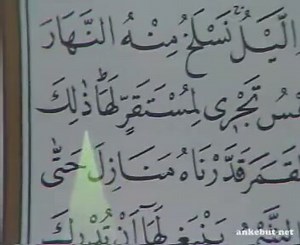 الَّيْلُ نَسْلَخُ مِنْهُ النَّهَارَ
تَجْرِى لِمُسْتَقَرٍّ لَهَا ذٰلِكَ
قَدَّرْنَاهُ مَنَازِلَ حَتّٰى
يَنْبَغِى لَهَآ اَنْ تُدْرِكَ
ankebut net